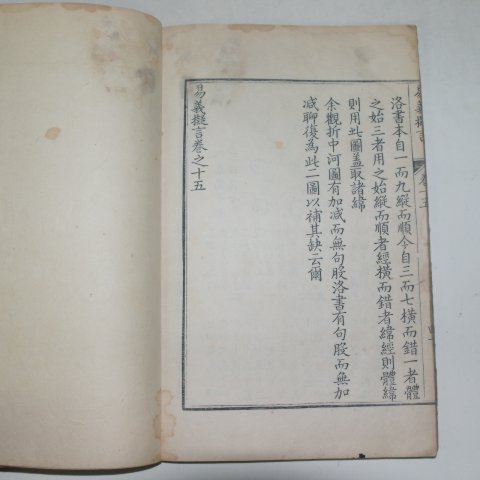 洛書本自一而九縱而順今自三而七橫而錯一者體
之始三者用之始縱而順者經橫而錯者緯經則體緯
則用此圖盖取諸緯
余觀折中河圖有加减而無句股洛書有句股而無加
减聊復為此二圖以補其缺云爾
易義擬言卷之十五
易義擬言
卷十五